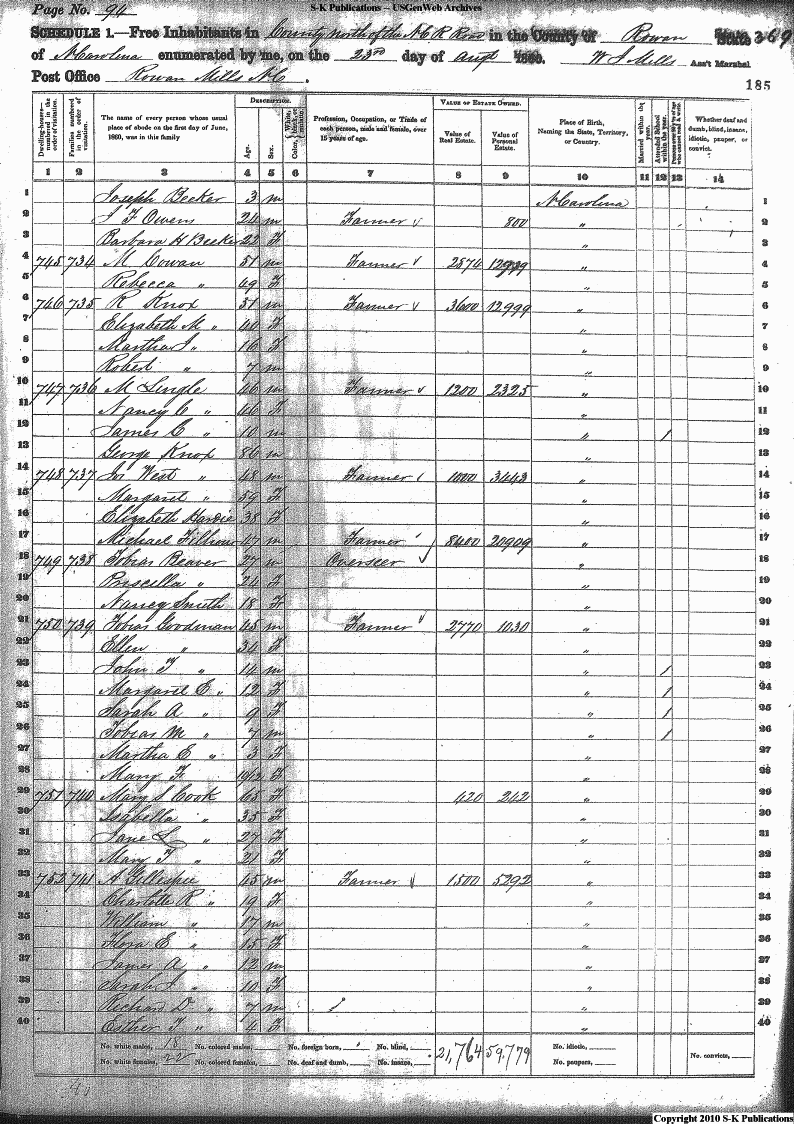 S-K Publications – USGenWeb Archives
Page No. 94
SCHEDULE 1.—Free Inhabitants in County north of the N C R Road in the County of Rowan State 369
of N Carolina enumerated by me, on the 23rd day of Augt 1860. W S Mills Ass't Marshal
Post Office Rowan Mills N C.
185
Dwelling-houses—numbered in the order of visitation.
Families numbered in the order of visitation.
The name of every person whose usual place of abode on the first day of June, 1860, was in this family
DESCRIPTION.
Age.
Sex.
Color,
Profession, Occupation, or Trade of each person, male and female, over 15 years of age.
VALUE OF ESTATE OWNED.
Value of Real Estate.
Value of Personal Estate.
Place of Birth, Naming the State, Territory, or Country.
Married within the year.
Attended School within the year.
Whether deaf and dumb, blind, insane, idiotic, pauper, or convict.
1 2 3 4 5 6 7 8 9 10 11 12 13 14
1 Joseph Beeker 3 m N Carolina 1
2 J F Owens 24 m Farmer 800 " 2
3 Barbara H Beeker 22 F " 3
4 745 734 M Cowan 51 m Farmer 2574 " 4
5 Rebecca " 49 F " 5
6 746 735 R Knox 51 m Farmer 3600 12999 " 6
7 Elizabeth M " 40 F " 7
8 Martha J " 16 F " 8
9 Robert " 7 m " 9
10 747 736 M Lingle 46 m Farmer 1200 2325 " 10
11 Nancy C " 46 F " 11
12 James C " 10 m " 1 12
13 George Knox 86 m " 13
14 748 737 Jos West " 48 m Farmer 1000 3443 " 14
15 Margaret " 59 F " 15
16 Elizabeth Hardie 38 F " 16
17 Michael Filhour 47 m Farmer 8400 20909 " 17
18 749 738 Tobias Beaver 27 m Overseer " 18
19 Priscella " 24 F " 19
20 Nancy Smith 18 F " 20
21 750 739 Tobias Goodman 45 m Farmer 2770 1030 " 21
22 Ellen " 34 F " 22
23 John F " 14 m " 1 23
24 Margaret E " 12 F " 1 24
25 Sarah A " 9 F " 1 25
26 Tobias M " 7 m " 1 26
27 Martha E " 3 F " 27
28 Mary F 10/12 F " 28
29 751 740 Mary S Cook 65 F 420 242 " 29
30 Isabella " 35 F " 30
31 Jane L " 27 F " 31
32 Mary T " 21 F " 32
33 752 741 A Gillespie 45 m Farmer 1500 5292 " 33
34 Charlotte R " 19 F " 34
35 William " 17 m " 35
36 Flora E " 15 F " 36
37 James A " 12 m " 37
38 Sarah J " 10 F " 38
39 Richard D " 7 m " 39
40 Esther F " 4 F " 40
No. white males, 18 No. colored males, No. foreign born, No. blind, 21,764 59,779 No. idiotic,
No. white females, 22 No. colored females, No. deaf and dumb, No. insane, No. paupers, No. convicts,
Copyright 2010 S-K Publications